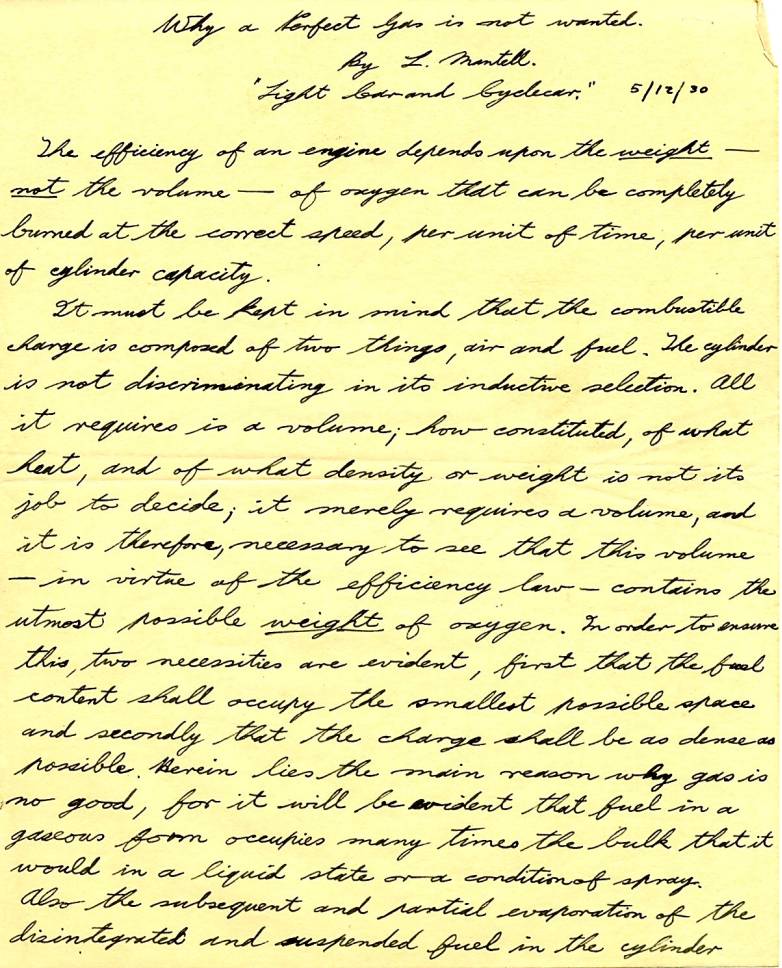 Why a Perfect Gas is not wanted.
By L. Mantell.
"Light Car and Cyclecar." 5/12/30
The efficiency of an engine depends upon the weight —
not the volume — of oxygen that can be completely
burned at the correct speed, per unit of time, per unit
of cylinder capacity.
It must be kept in mind that the combustible
charge is composed of two things, air and fuel. The cylinder
is not discriminating in its inductive selection. All
it requires is a volume; how constituted, of what
heat, and of what density or weight is not its
job to decide; it merely requires a volume, and
it is therefore, necessary to see that this volume
— in virtue of the efficiency law — contains the
utmost possible weight of oxygen. In order to ensure
this, two necessities are evident, first that the fuel
content shall occupy the smallest possible space
and secondly that the charge shall be as dense as
possible. Herein lies the main reason why gas is
no good, for it will be evident that fuel in a
gaseous form occupies many times the bulk that it
would in a liquid state or a condition of spray.
Also the subsequent and partial evaporation of the
disintegrated and suspended fuel in the cylinder